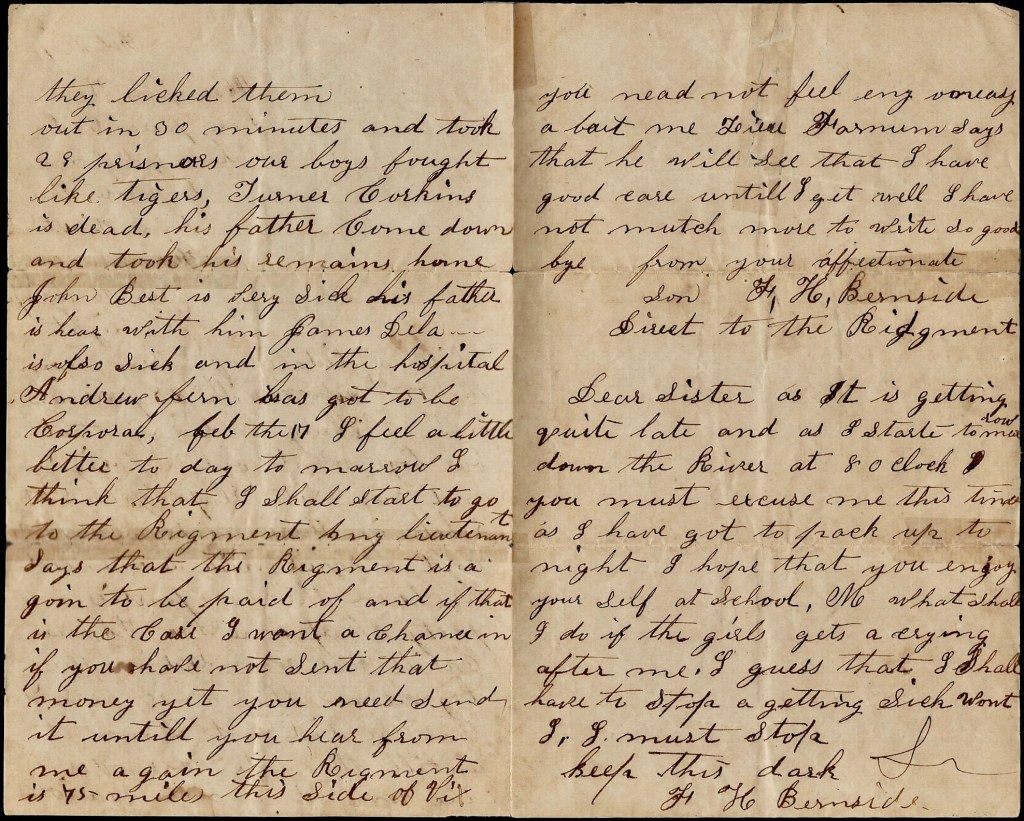 they licked them
out in 30 minutes and took
28 prisners our boys fought
like tigers, Turner Corkins
is dead, his father Come down
and took his remains home
John Best is very Sick his father
is hear with him James Dela
is also Sick and in the hospital
Andrew fern has got to be
Corporal, feb the 17 I feel a little
better to day to marrow I
think that I Shall Start to go
to the Rigment my lieutenant
Says that the Rigment is a
goin to be paid of and if that
is the Case I want a Chance in
if you have not Sent that
money yet you need Send
it untill you hear from
me again the Rigment
is 75 miles this Side of Vix
you nead not feel eny oneasy
a bait me Lieu Farnum Says
that he will See that I have
good care untill I get well I have
not mutch more to write So good
bye from your affectionate
Son F, H, Bernside
Direct to the Ridgment
Dear Sister as It is getting
quite late and as I Starte to morrow
down the River at 8 O clock
you must excuse me this time
as I have got to pack up to
night I hope that you enjoy
your Self at School, M what Shall
I do if the girls gets a crying
after me. I guess that I Shall
have to Stop a getting Sick wont
I, I must Stop
keep this dark
F H Bernside